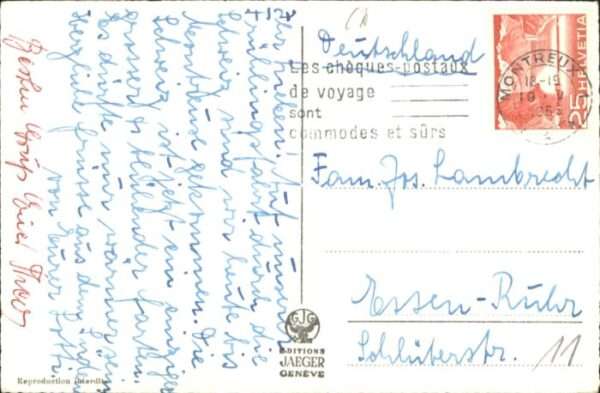 Ihr Lieben! Auf unserer
Frühlingsfahrt durch die
Schweiz sind wir heute bis
Montreux gekommen. Die
Schweiz ist jetzt ein einziger
grosser, blühender Garten.
Es dürfte nur wärmer sein.
Herzliche Grüsse aus dem Süden
von Eurer Lotti
Deutschland
Les chèques-postaux
de voyage
sont
commodes et sûrs
MONTREUX
18-19
HELVETIA
25
Fam. Jos. Lambrecht
Essen-Ruhr
Schlüterstr. 11
EDITIONS
JAEGER
GENÈVE
Reproduction interdite